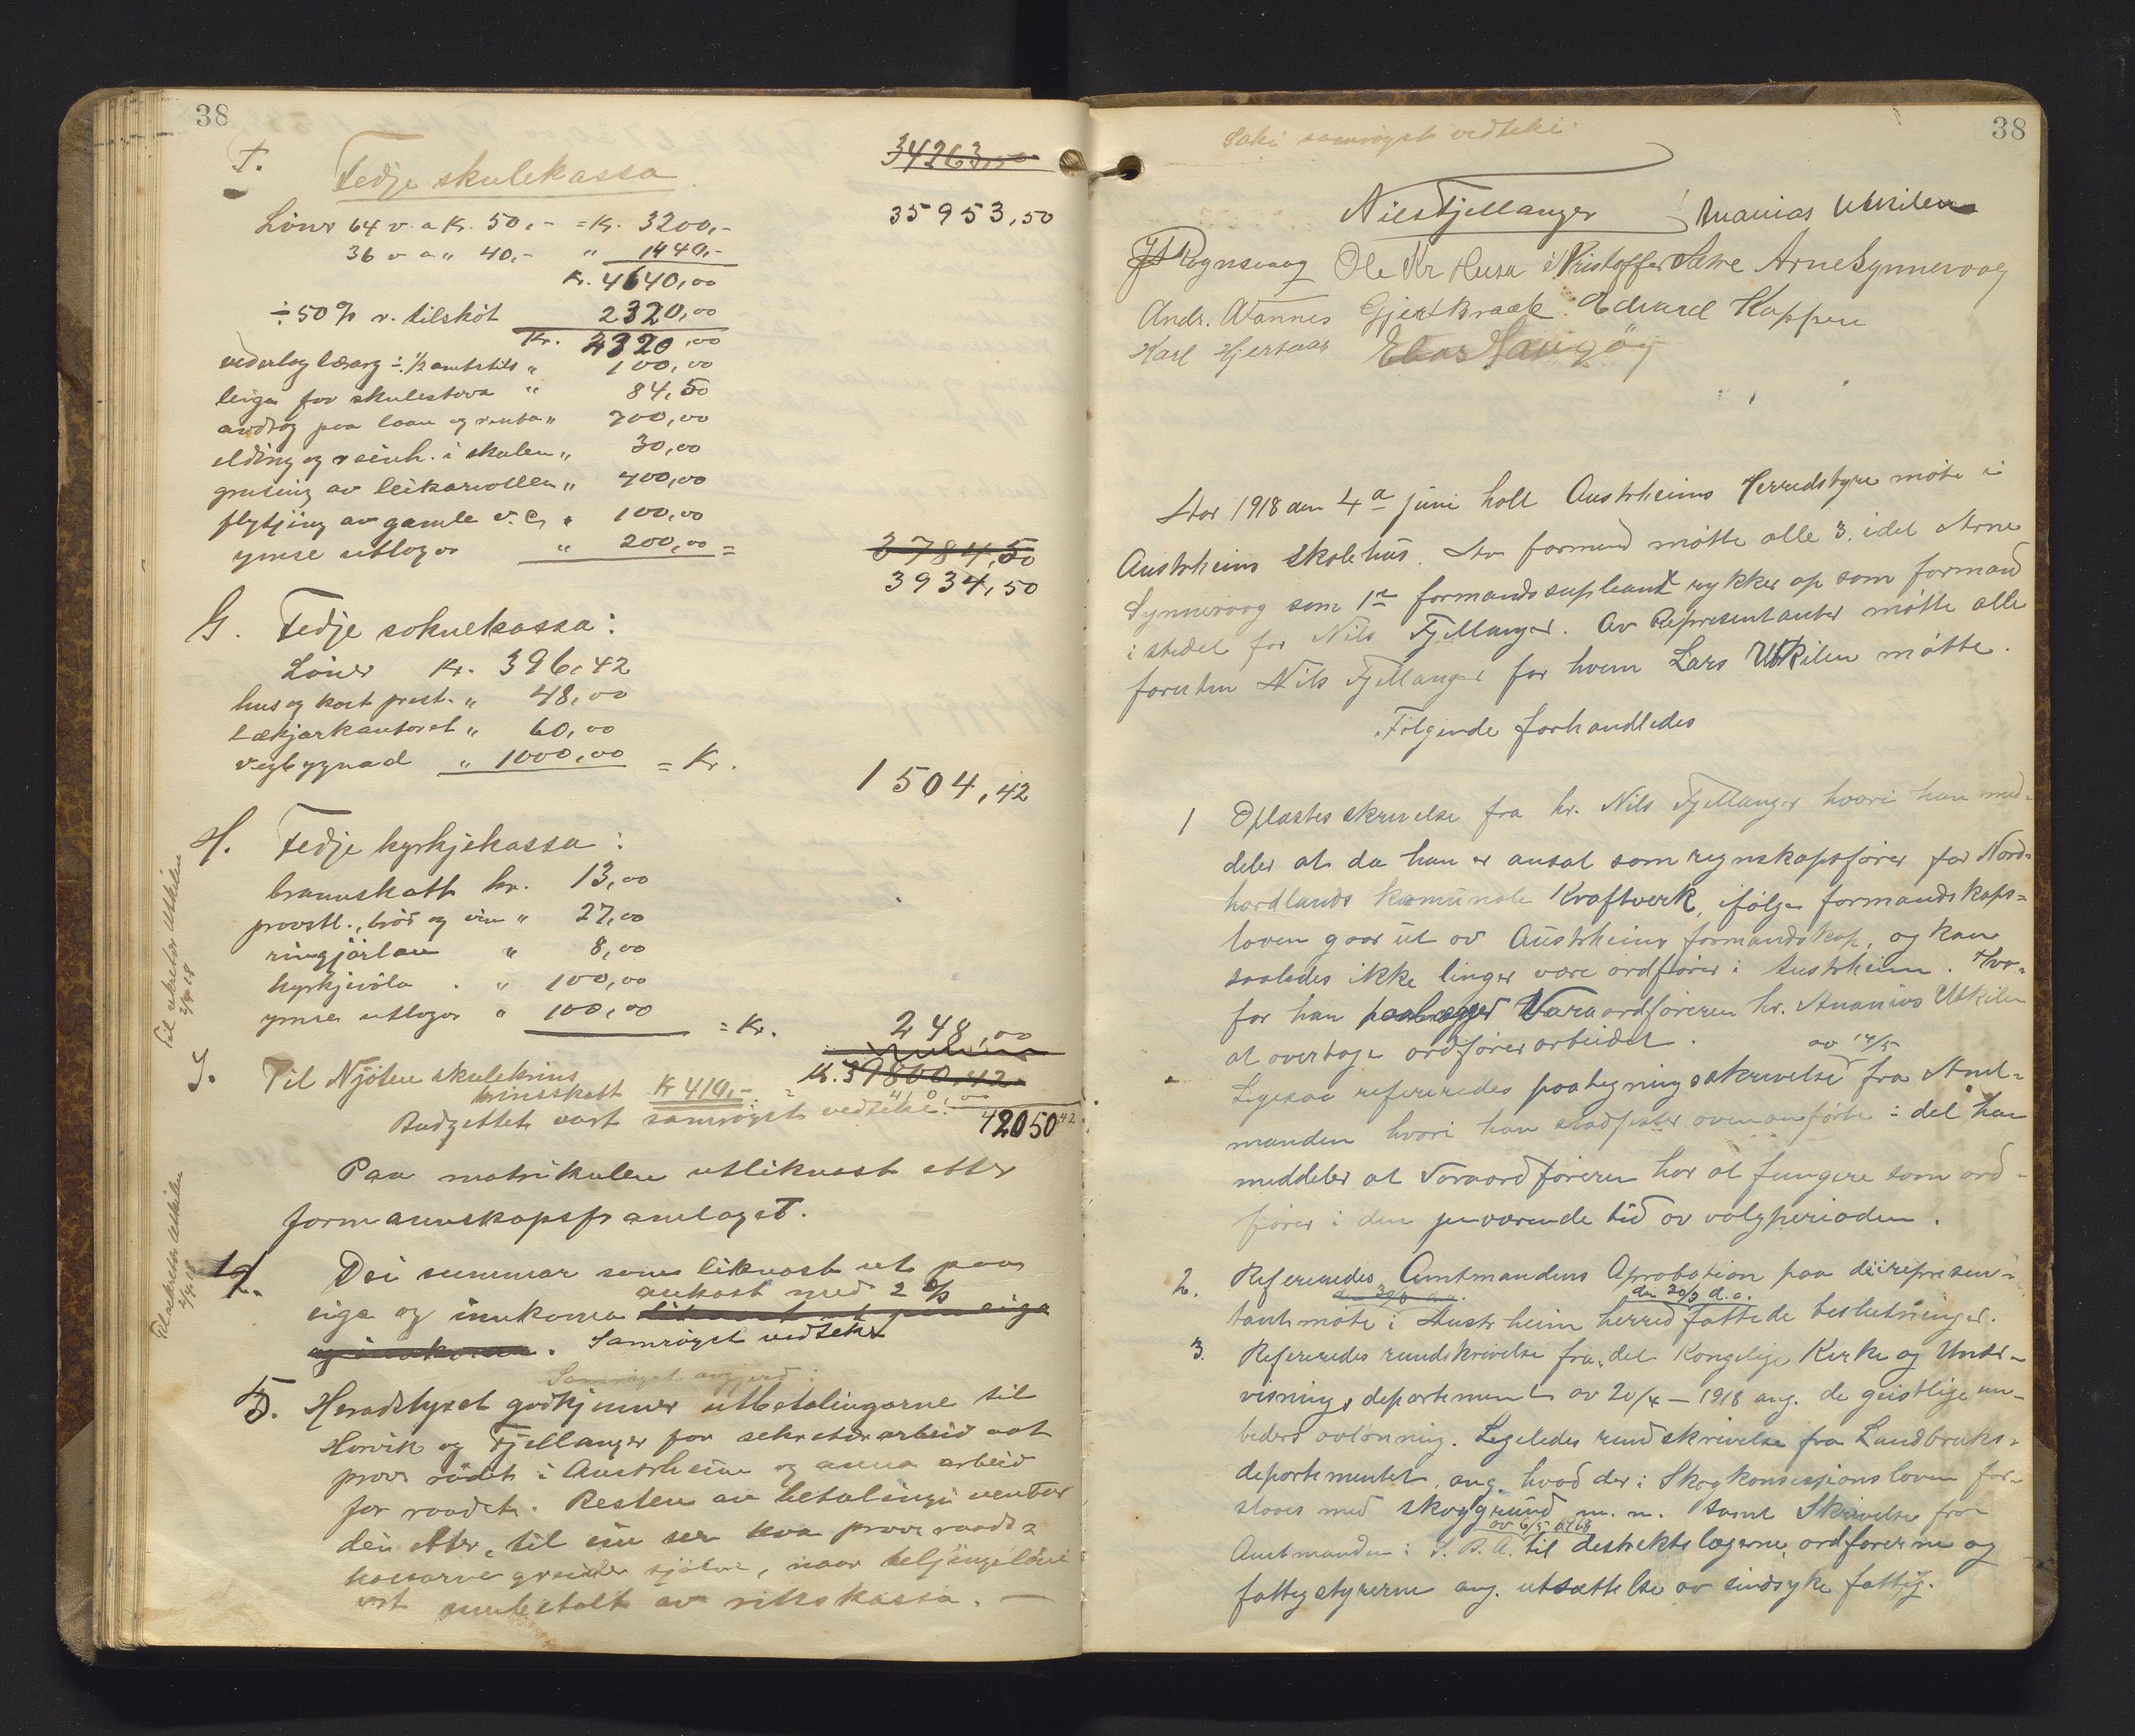 38
F. Fedje skulekassa
34263,50
35953,50
Löner 64 v. a Kr. 50,- = Kr. 3200,-
36 v a " 40,- " 1440,-
Kr. 4640,00
÷ 50 % v. tilskot 2320,00
Kr. 2320,00
vederlag lærarg ÷ 1/2 amtstils " 100,00
leiga for skulestova " 84,50
avdrag paa laan og renta " 700,00
elding og reinh. i skulen " 30,00
grusing av leikarvollen " 400,00
flytjing av gamle v. C. " 100,00
ymse utlogor " 200,00 =
3784,50
3934,50
G. Fedje soknekassa:
Löner Kr. 396,42
hus og kost prest. " 48,00
Lækjarkontoret " 60,00
vegbygnad " 1000,00 = Kr.
1504,42
H. Fedje kyrkjekassa:
brannskatt kr. 13,00
provstl., bröd og vin " 27,00
ringjarlön " 8,00
kyrkjevöla " 100,00
ymse utlogor " 100,00 = Kr.
248,00
Kr. 39800,42
J. Til Njöten skulekrins
krinsskatt Kr 410,- = 410,00
Budgettet vart samröyst vedteke. 42050 42
Paa matrikulen utliknast etter
formannskapsframlaget.
Til sekretær Utkilen
2/4 18
Til sekretær Utkilen
2/4 18
Dei summar som liknast ut paa
eiga og innkoma aukast med 2 %
liknast ut paa eiga
og innkoma. Samröyst vedteke
Samröyst avgjerd:
5. Heradstyret godkjenner utbetalingarne til
Horvik og Fjellanger for sekretærarbeid aat
prov. raadet i Austrheim og anna arbeid
for raadet. Resten av betalingi ventar
dei etter, til ein ser kva prov. raads-
kassarne greider sjölve, naar teljingslöni
vert innbetalt av rikskassa. —
38
Saki samröyst vedteke.
Nils Fjellanger Ananias Utkilen
Rognsvaag Ole Kr Husa Kristoffer Sætre Arne Synnevaag
Andr. Wannes Gjert Kraak Edvard Hopper
Karl Hjertaas Elias Haugöy
Aar 1918 den 4a juni holt Austrheims Herredstyre möte i
Austrheim skolehus. Av formend mötte alle 3. idet Arne
Synnevaag som 1ste formandssupleant rykker op som formand
i stedet for Nils Fjellanger. Av Representanter mötte alle
foruten Nils Fjellanger for hvem Lars Utkilen mötte.
Fölgende forhandledes
1 Oplæstes skrivelse fra hr. Nils Fjellanger hvori han med-
deler at da han er ansat som regnskapsförer for Nord-
hordlands komunale Kraftverk, ifölge formandskaps-
loven gaar ut av Austrheims formandskap, og kan
saaledes ikke lenger være ordförer i Austrheim. Hvor-
for han paalegger Varaordföreren hr. Ananias Utkilen
at overtage ordförerarbeidet.
av 14/5
Ligesaa refereredes paategningsskrivelse fra Amt-
manden hvori han stadfester ovenanförte i det han
meddeler at Varaordföreren har at fungere som ord-
förer i den genværende tid av valgperioden.
2. Refereredes Amtmandens Aprobation paa de i represen-
den 20/3 d.a.
tantmöte i Austrheim herred fattede beslutninger.
3. Refereredes rundskrivelse fra det Kongelige Kirke og Under-
visnings departement av 20/4 – 1918 ang. de geistlige em-
beders avlönning. Ligeledes rundskrivelse fra Landbruks-
departementet ang. hvad der i Skogkonsesjonsloven for-
staaes med skoggrund m. m. Samt Skrivelse fra
av 6/5 1918
Amtmanden i S. B. A. til destriktslægerne, ordförerne og
fattigstyrerne ang. utsættelse av sindsyke fattig.